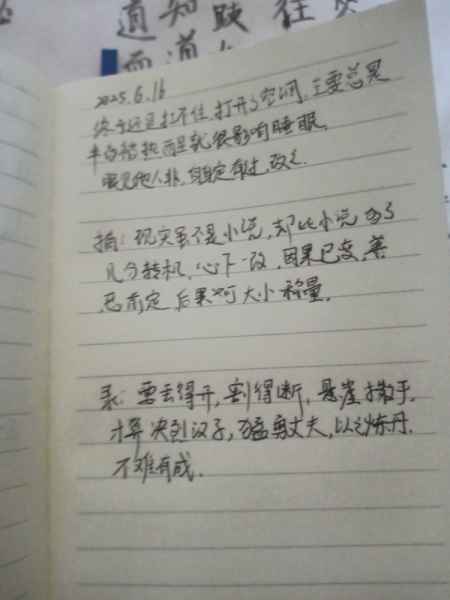 道知 往
而道
2025.6.16
终于还是扛不住,打开了空调,主要总是
半夜醒 热 很影响睡眠,
眼见他人非, 自 有过,改之.
摘:现实虽不是小说,却比小说多了
几分转机,心下一改,因果已变,善
恶 定 后果 可大小称量.
录:要丢得开,割得断,悬崖撒手,
才算决烈汉子,猛勇丈夫,以之炼丹,
不难有成.